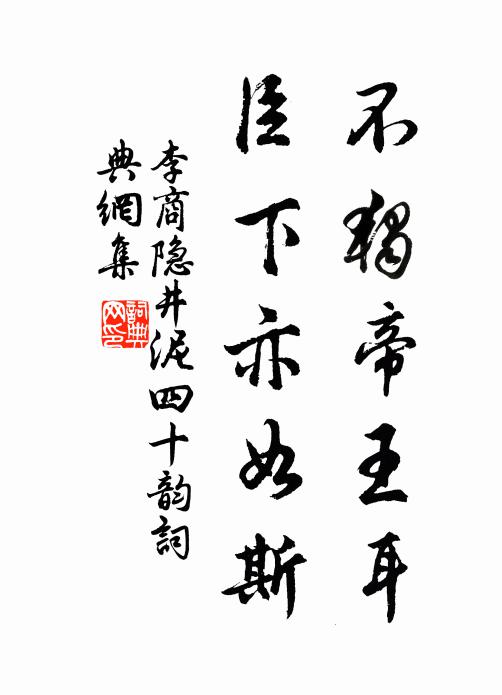 不獨帝王耳
臣下亦如斯
李商隐井泥四十韵詞
典網集
詞典
网印